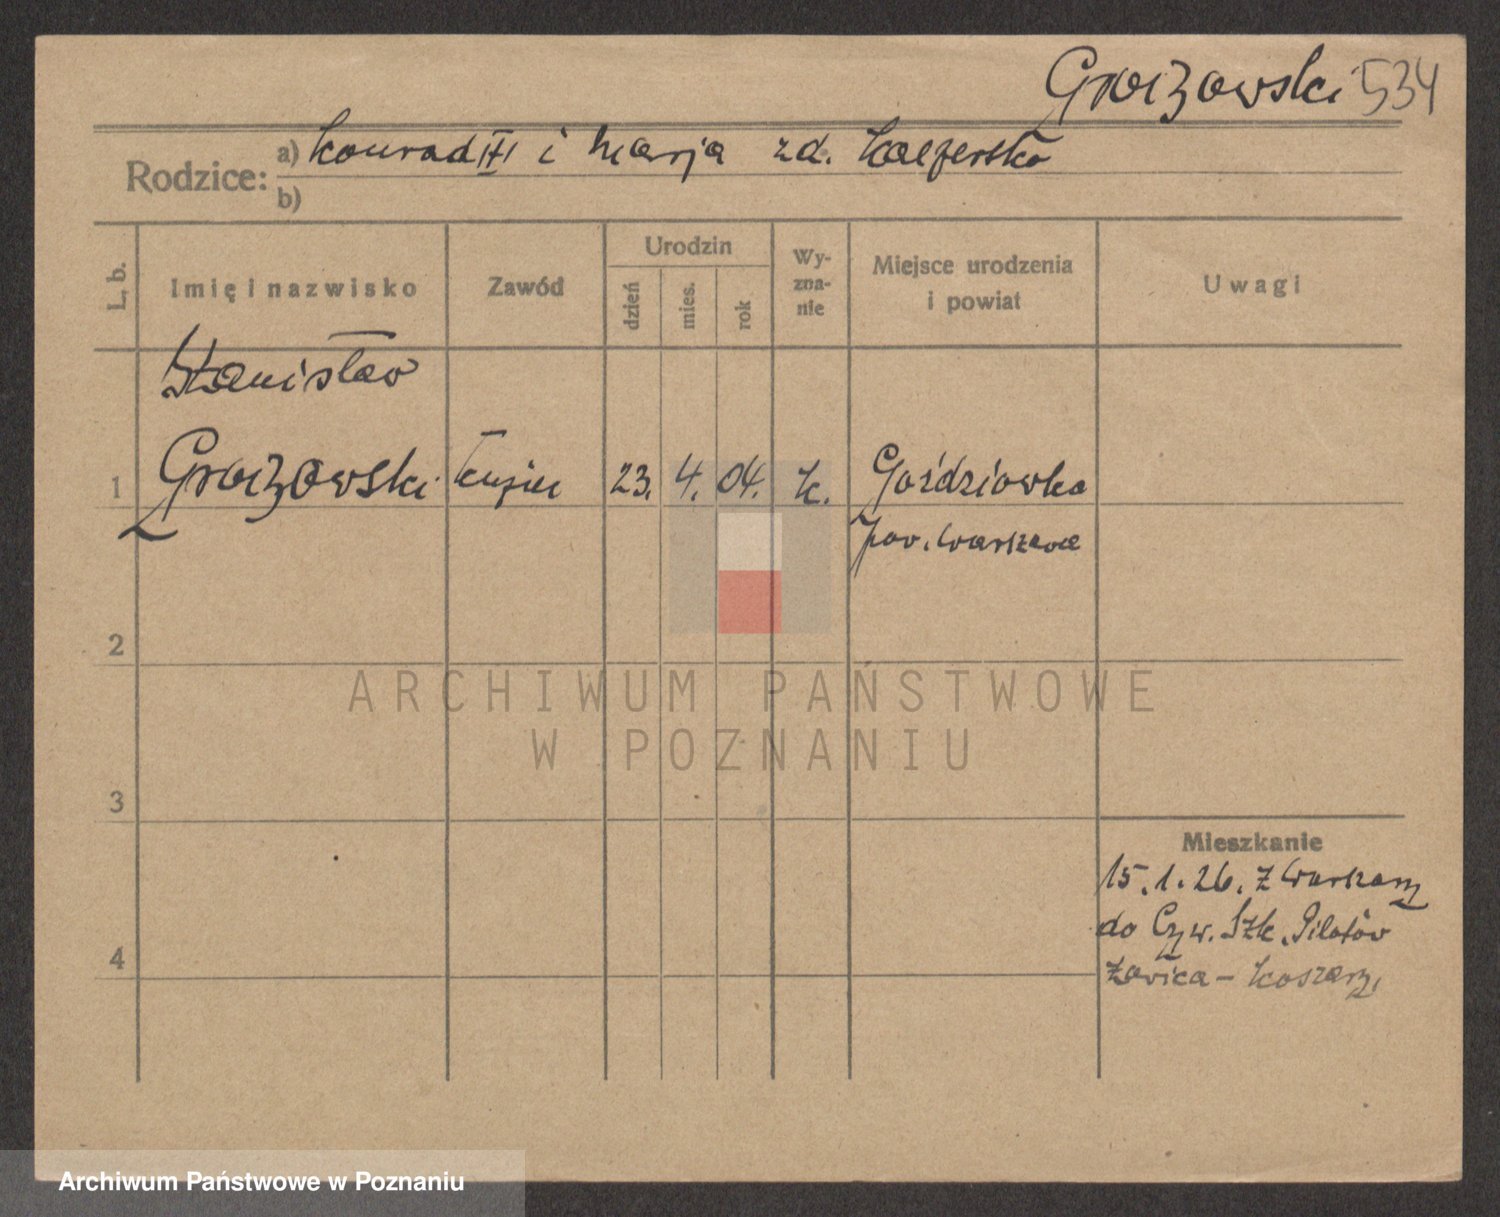 Groizowski 534
Rodzice: a) Konrad i Marja zd. Kacperska
b)
L. b.
Imię i nazwisko
Zawód
Urodzin
dzień
mies.
rok
Wy-
zna-
nie
Miejsce urodzenia
i powiat
Uwagi
Stanisław
1 Groizowski 23. 4. 04. k. Goździówka
pow. Warszawa
2
ARCHIWUM PAŃSTWOWE
W POZNANIU
3
Mieszkanie
15.1.26. z Warszawy
do Cyw. Szk. Pilotów
Ławica - koszary
4
Archiwum Państwowe w Poznaniu